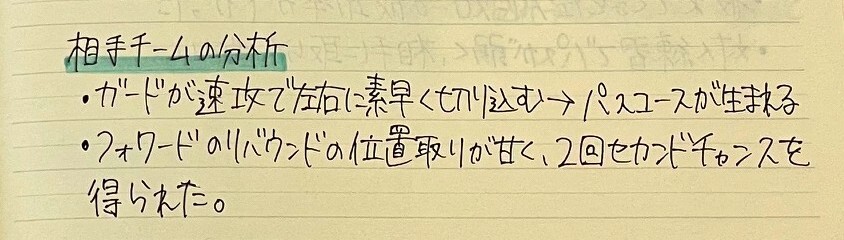 相手チームの分析
・ガードが速攻で左右に素早く切り込む→パスコースが生まれる
・フォワードのリバウンドの位置取りが甘く、2回セカンドチャンスを
得られた。